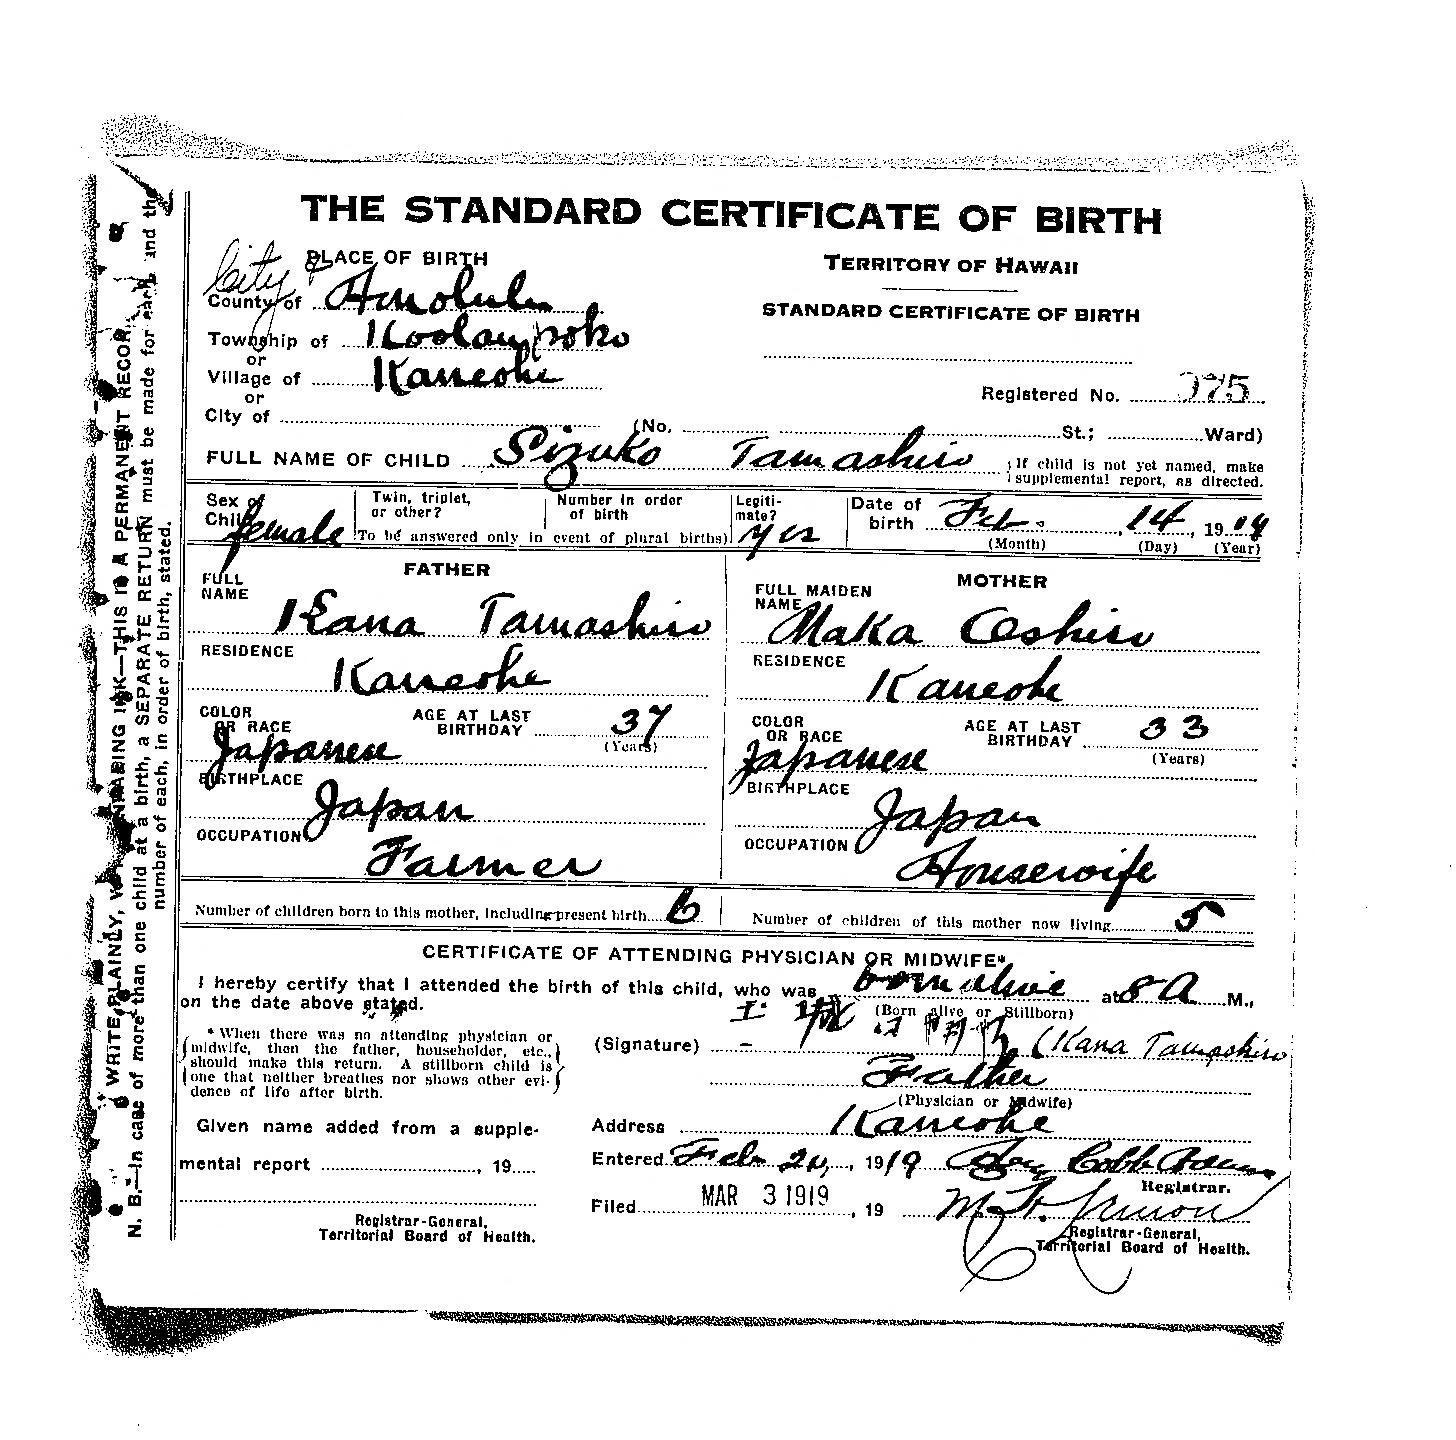 THE STANDARD CERTIFICATE OF BIRTH
PLACE OF BIRTH
City &
County of Honolulu
Township of Koolaupoko
or
Village of Kaneohe
or
City of (No. St.; Ward)
TERRITORY OF HAWAII
STANDARD CERTIFICATE OF BIRTH
Registered No. 775
FULL NAME OF CHILD Sizuko Tamashiro
If child is not yet named, make
supplemental report, as directed.
Sex of
Child female
Twin, triplet,
or other?
Number in order
of birth
(To be answered only in event of plural births)
Legiti-
mate?
yes
Date of
birth Feb. 14, 19
(Month) (Day) (Year)
FATHER
FULL
NAME
Kana Tamashiro
RESIDENCE
Kaneohe
COLOR
OR RACE
Japanese
AGE AT LAST
BIRTHDAY 37
(Years)
BIRTHPLACE
Japan
OCCUPATION
Farmer
MOTHER
FULL MAIDEN
NAME
Maka Oshiro
RESIDENCE
Kaneohe
COLOR
OR RACE
Japanese
AGE AT LAST
BIRTHDAY 33
(Years)
BIRTHPLACE
Japan
OCCUPATION
Housewife
Number of children born to this mother, including present birth 6
Number of children of this mother now living 5
CERTIFICATE OF ATTENDING PHYSICIAN OR MIDWIFE*
I hereby certify that I attended the birth of this child, who was born alive at 8 A M.,
on the date above stated.
(Born alive or Stillborn)
* When there was no attending physician or
midwife, then the father, householder, etc.,
should make this return. A stillborn child is
one that neither breathes nor shows other evi-
dence of life after birth.
(Signature) (Kana Tamashiro
Father
(Physician or Midwife)
Given name added from a supple-
mental report , 19
Registrar-General,
Territorial Board of Health.
Address Kaneohe
Entered Feb 20, 1919
Cobb Adams
Registrar.
Filed MAR 3 1919, 19
Registrar-General,
Territorial Board of Health.
WRITE PLAINLY, WITH UNFADING INK—THIS IS A PERMANENT RECORD.
N. B.—In case of more than one child at a birth, a SEPARATE RETURN must be made for each, and the
number of each, in order of birth, stated.